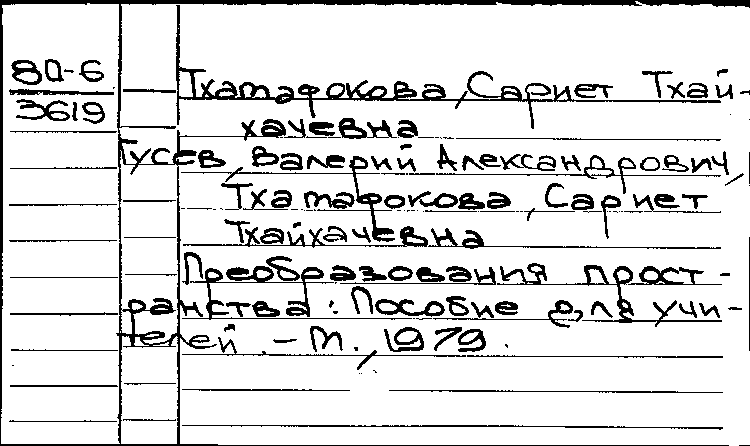 80-6
3619
Тхатафокова, Сариет Тхай-
хачевна
Гусев, Валерий Александрович,
Тхатафокова, Сариет
Тхайхачевна
Преобразования прост-
ранства: Пособие для учи-
телей. - М., 1979.